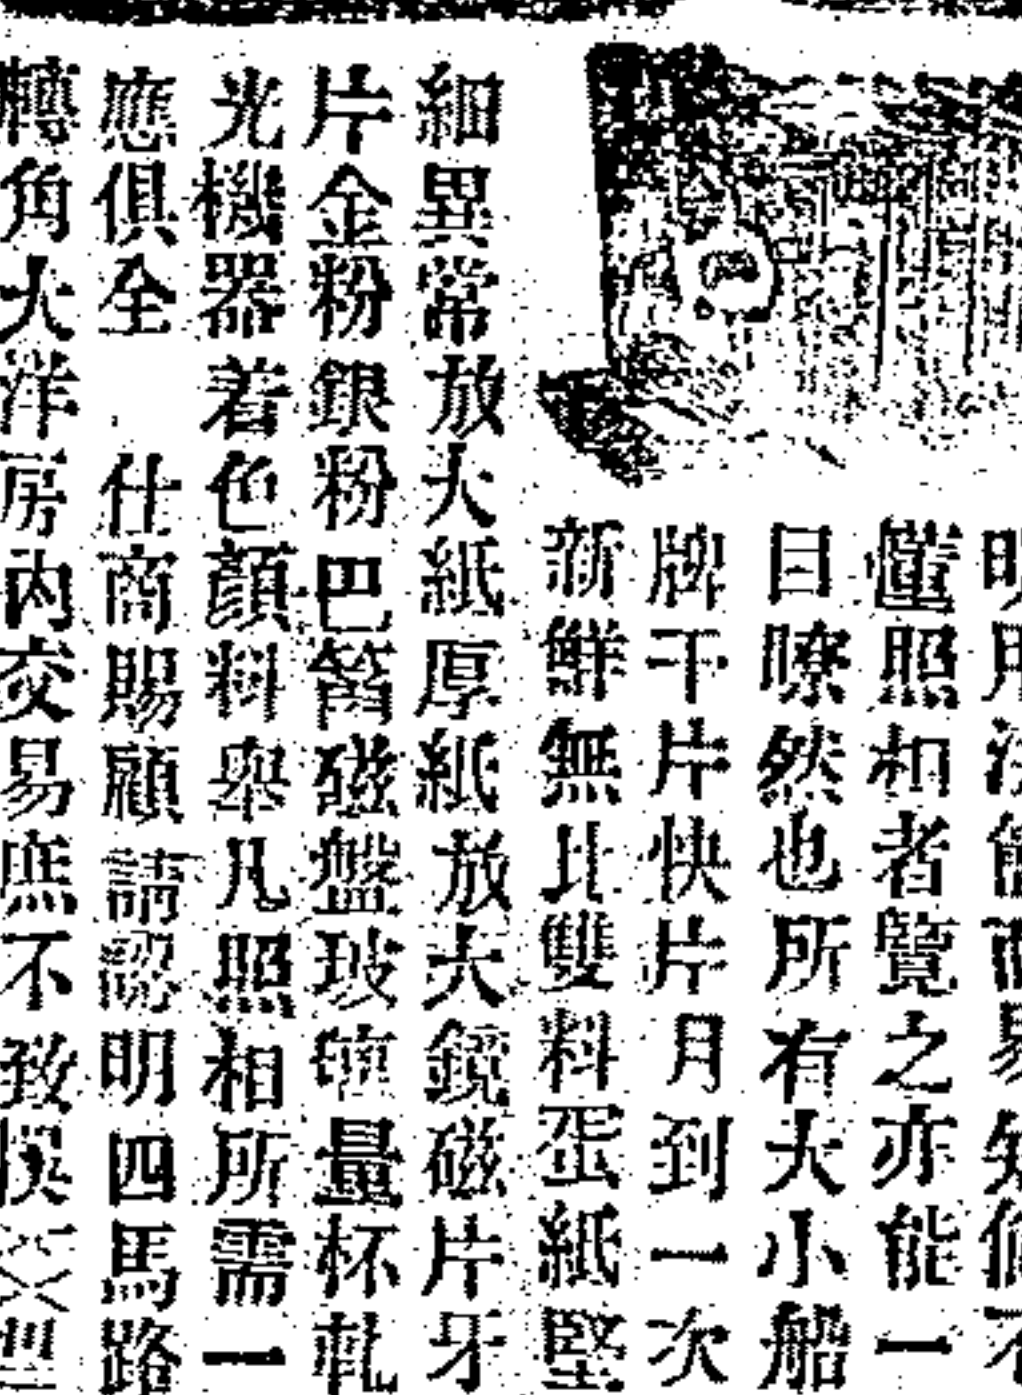 明用法簡而易知倘不
懂照相者覽之亦能一
目瞭然也所有大小船
牌干片快片月到一次
新鮮無比雙料蛋紙堅
細異常放大紙厚紙放大鏡磁片牙
片金粉銀粉巴筩磁盤玻 量杯軋
光機器着色顏料舉凡照相所需一
應俱全 仕商賜顧請認明四馬路
轉角大洋房內交易庶不致悞